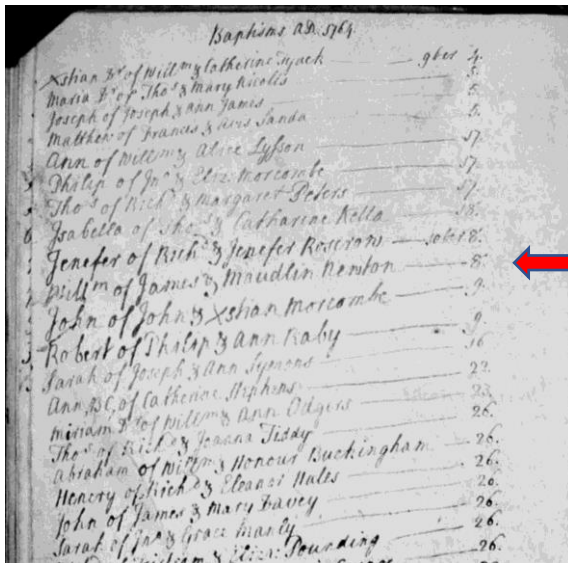 Baptisms A.D. 1764.
Xstian Dr of Willm & Catherine Tyack — 9ber 4.
Maria Dr of Thos & Mary Nicolls 5.
Joseph of Joseph & Ann James 5.
Matthew of Francis & Avis Sanda 5.
Ann of Willm & Alice Lysson 17.
Philip of Jno & Eliz: Morcombe 17.
Thos of Richd & Margaret Peters 17.
Isabella of Thos & Catharine Kella 18.
Jenefer of Richd & Jenefer Roscrow — 10ber 8.
Willm of James & Maudlin Newton 8.
John of John & Xstian Morcombe 9.
Robert of Philip & Ann Raby 9
Sarah of Joseph & Ann Symons 16
Ann, of Catherine Stephens 22.
Miriam Dr of Willm & Ann Odgers 23
Thos of Richd & Joanna Tiddy 26.
Abraham of Willm & Honour Buckingham 26.
Henery of Richd & Eleanor Hales 26.
John of James & Mary Davey 26.
Sarah of Jno & Grace Manly 26.
& Eliza: Pounding 26.